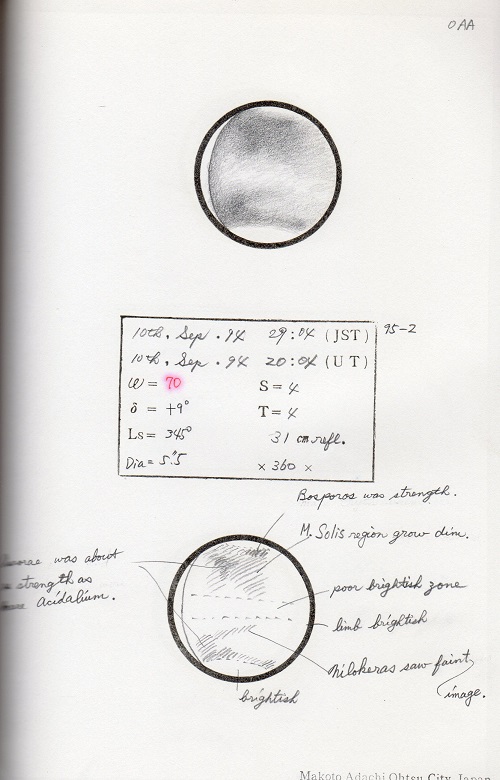 OAA
10th. Sep. '94 29:04 (JST)
95-2
10th. Sep. 94 20:04 (UT)
ω = 70 S = 4
δ = +9° T = 4
Ls = 345° 31 cm refl.
Dia = 5".5 × 360 ×
Bosporos was strength.
M. Solis region grow dim.
was about
strength as
Acidalium.
poor brightish zone
limb brightish
Nilokeras saw faint
image.
brightish
Makoto Adachi Ohtsu City, Japan